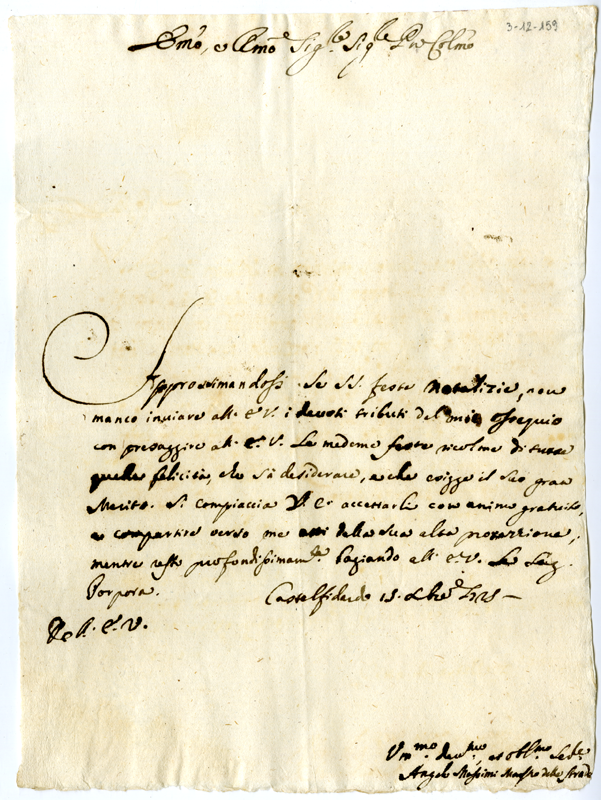 3-12-159
Em̃o, e Rm̃o Sig.re Sig.re P̃ne Colm̃o
Approssimandosi le SS. feste natalizie, non
manco inviare all' E. V. i devoti tributi del mio ossequio
con presaggire all' E. V. le medeme feste ricolme di tutte
quelle felicità, che sà desiderare, e che esigge il suo gran
Merito. Si compiaccia V. E. accettarle con animo gratuito,
e compartire verso me atti della sua alta
mentre resto profondissimam.te baciando all' E. V. la
Porpora.
Castelfidardo 15
Di V. E.
Vm.mo dev.mo, et obl.mo
Angelo Massimi Maestro delle Strade